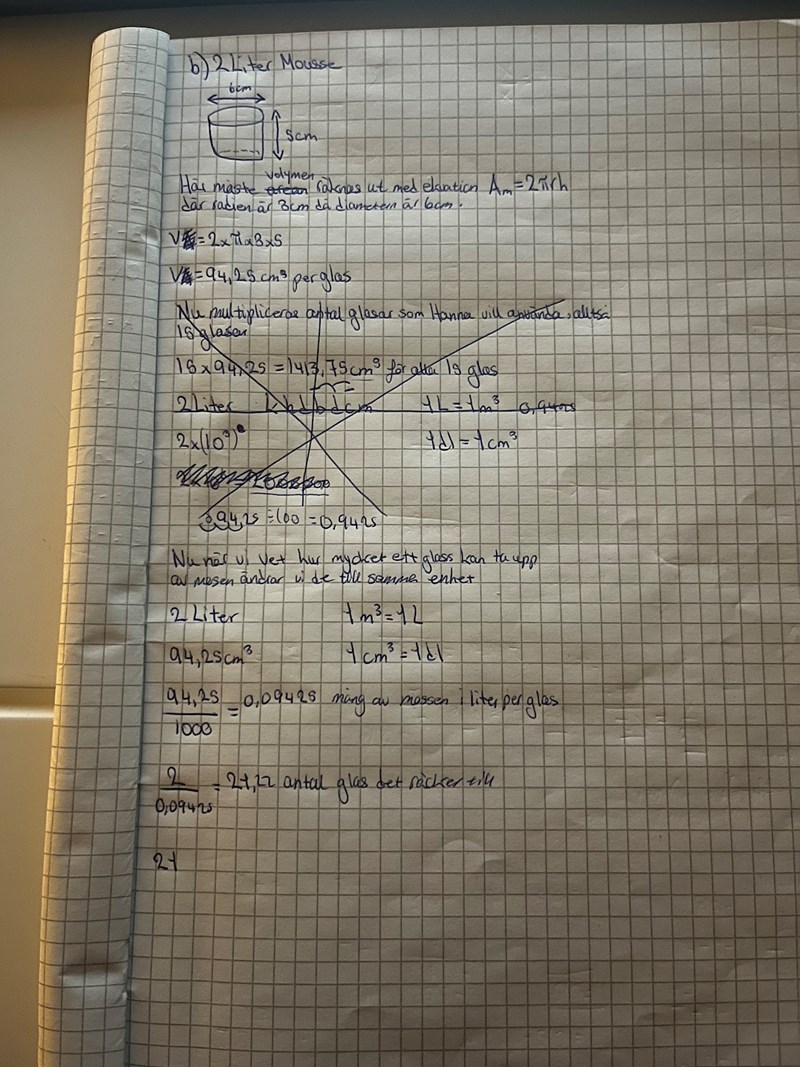 b) 2 Liter Mousse
6cm
5cm
volymen
Här måste arean räknas ut med ekvation Am=2πrh
där radien är 3cm då diametern är 6cm.
V=2×π×3×5
V=94,25 cm³ per glas
Nu multiplicerar antal glasar som Hanna vill använda, alltså
15 glasen
15×94,25=1413,75cm³ för alla 15 glas
2 Liter 1L=1m³ 0,9425
2×(10³) 1dl=1cm³
94,25÷100=0,9425
Nu när vi vet hur mycket ett glass kan ta upp
av mosen ändrar vi de till samma enhet
2 Liter 1m³=1L
94,25cm³ 1cm³=1dl
94,25/1000=0,09425 mäng av mossen i liter per glas
2/0,09425=21,22 antal glas det räcker till
21